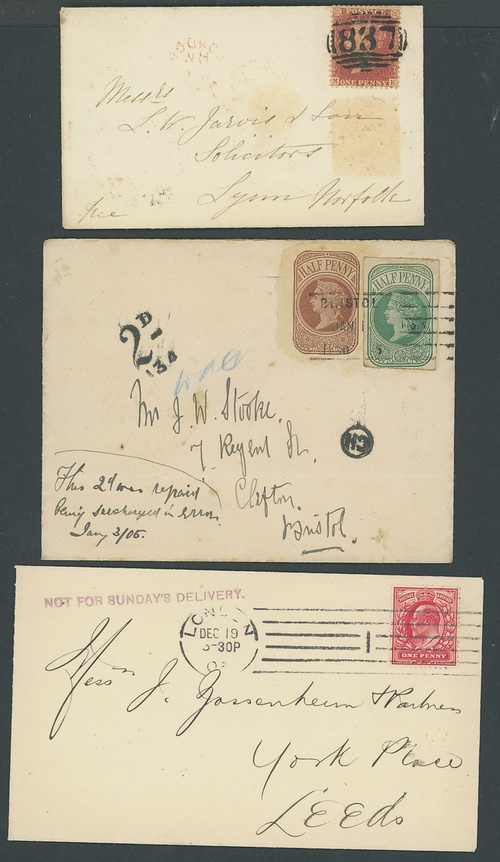 POSTAGE
837
M K
ONE PENNY
Messrs
L. W. Jarvis & Son
Solicitors
Lynn Norfolk
HALF PENNY
HALF PENNY
BRISTOL
JAN 1
2D
134
Mr J. W. Stooke.
7 Regent St.
Clifton.
Bristol.
This 2d was repaid
being surcharged in error.
Jany 3/05.
NOT FOR SUNDAY'S DELIVERY.
LONDON
DEC 19
5-30P
1
ONE PENNY
Messrs J. Gossenheim & Partners
York Place
LEEDS